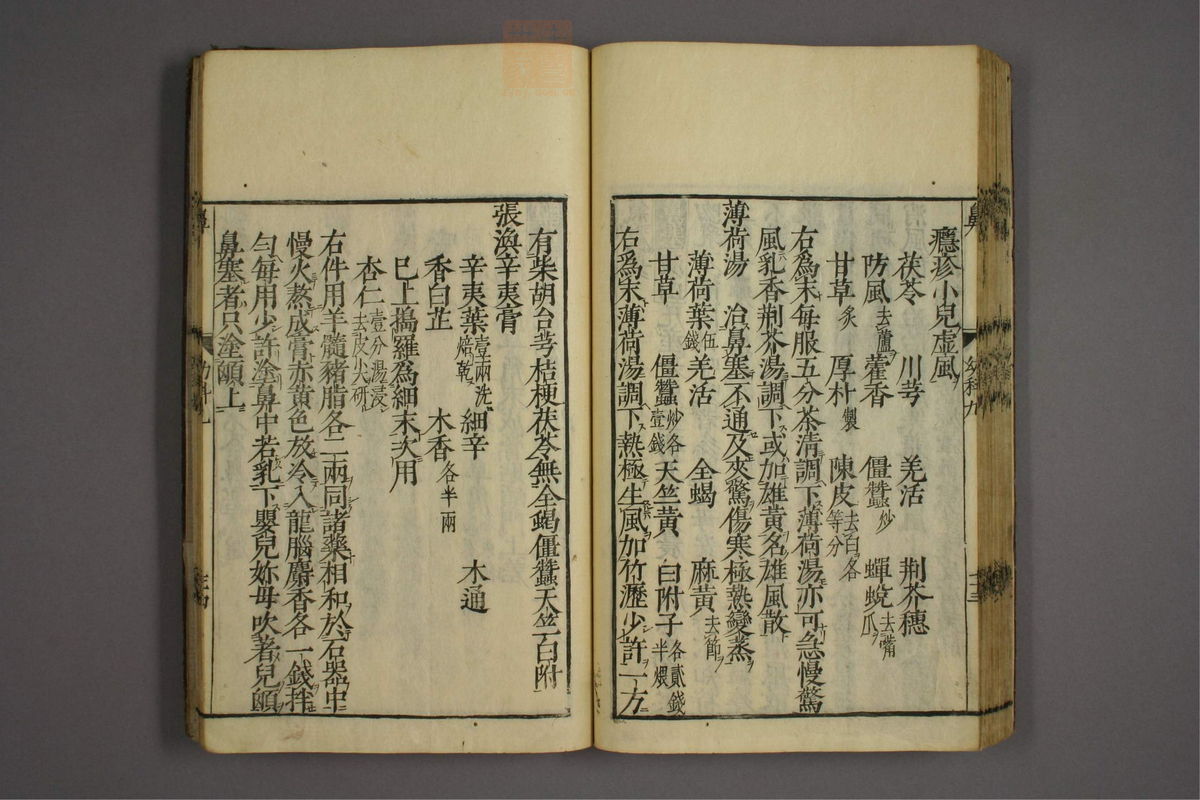 癮疹小兒虛風
茯苓　川芎　羌活　荆芥穗
防風去蘆　藿香　僵蠶炒　蟬蛻去嘴爪
甘草炙　厚朴製　陳皮去白各等分
右為末每服五分茶清調下薄荷湯亦可急慢驚
風乳香荆芥湯調下或加雄黃名雄風散
薄荷湯　治鼻塞不通及夾驚傷寒極熱變蒸
薄荷葉伍錢　羌活　全蝎　麻黃去節
甘草　僵蠶炒各壹錢　天竺黃　白附子各貳錢半煨
右爲末薄荷湯調下熱極生風加竹瀝少許一方
有柴胡台芎桔梗茯苓無全蝎僵蠶天竺白附
張渙辛夷膏
辛夷葉壹兩洗焙乾　細辛　木通
香白芷　木香各半兩
已上搗羅為細末次用
杏仁壹分湯浸去皮尖研
右件用羊髓豬脂各二兩同諸藥相和於石器中
慢火熬成膏赤黃色放冷入龍腦麝香各一錢拌
勻每用少許塗鼻中若乳下嬰兒妳母吹著兒顖
鼻塞者只塗顖上
鼻
幼科九